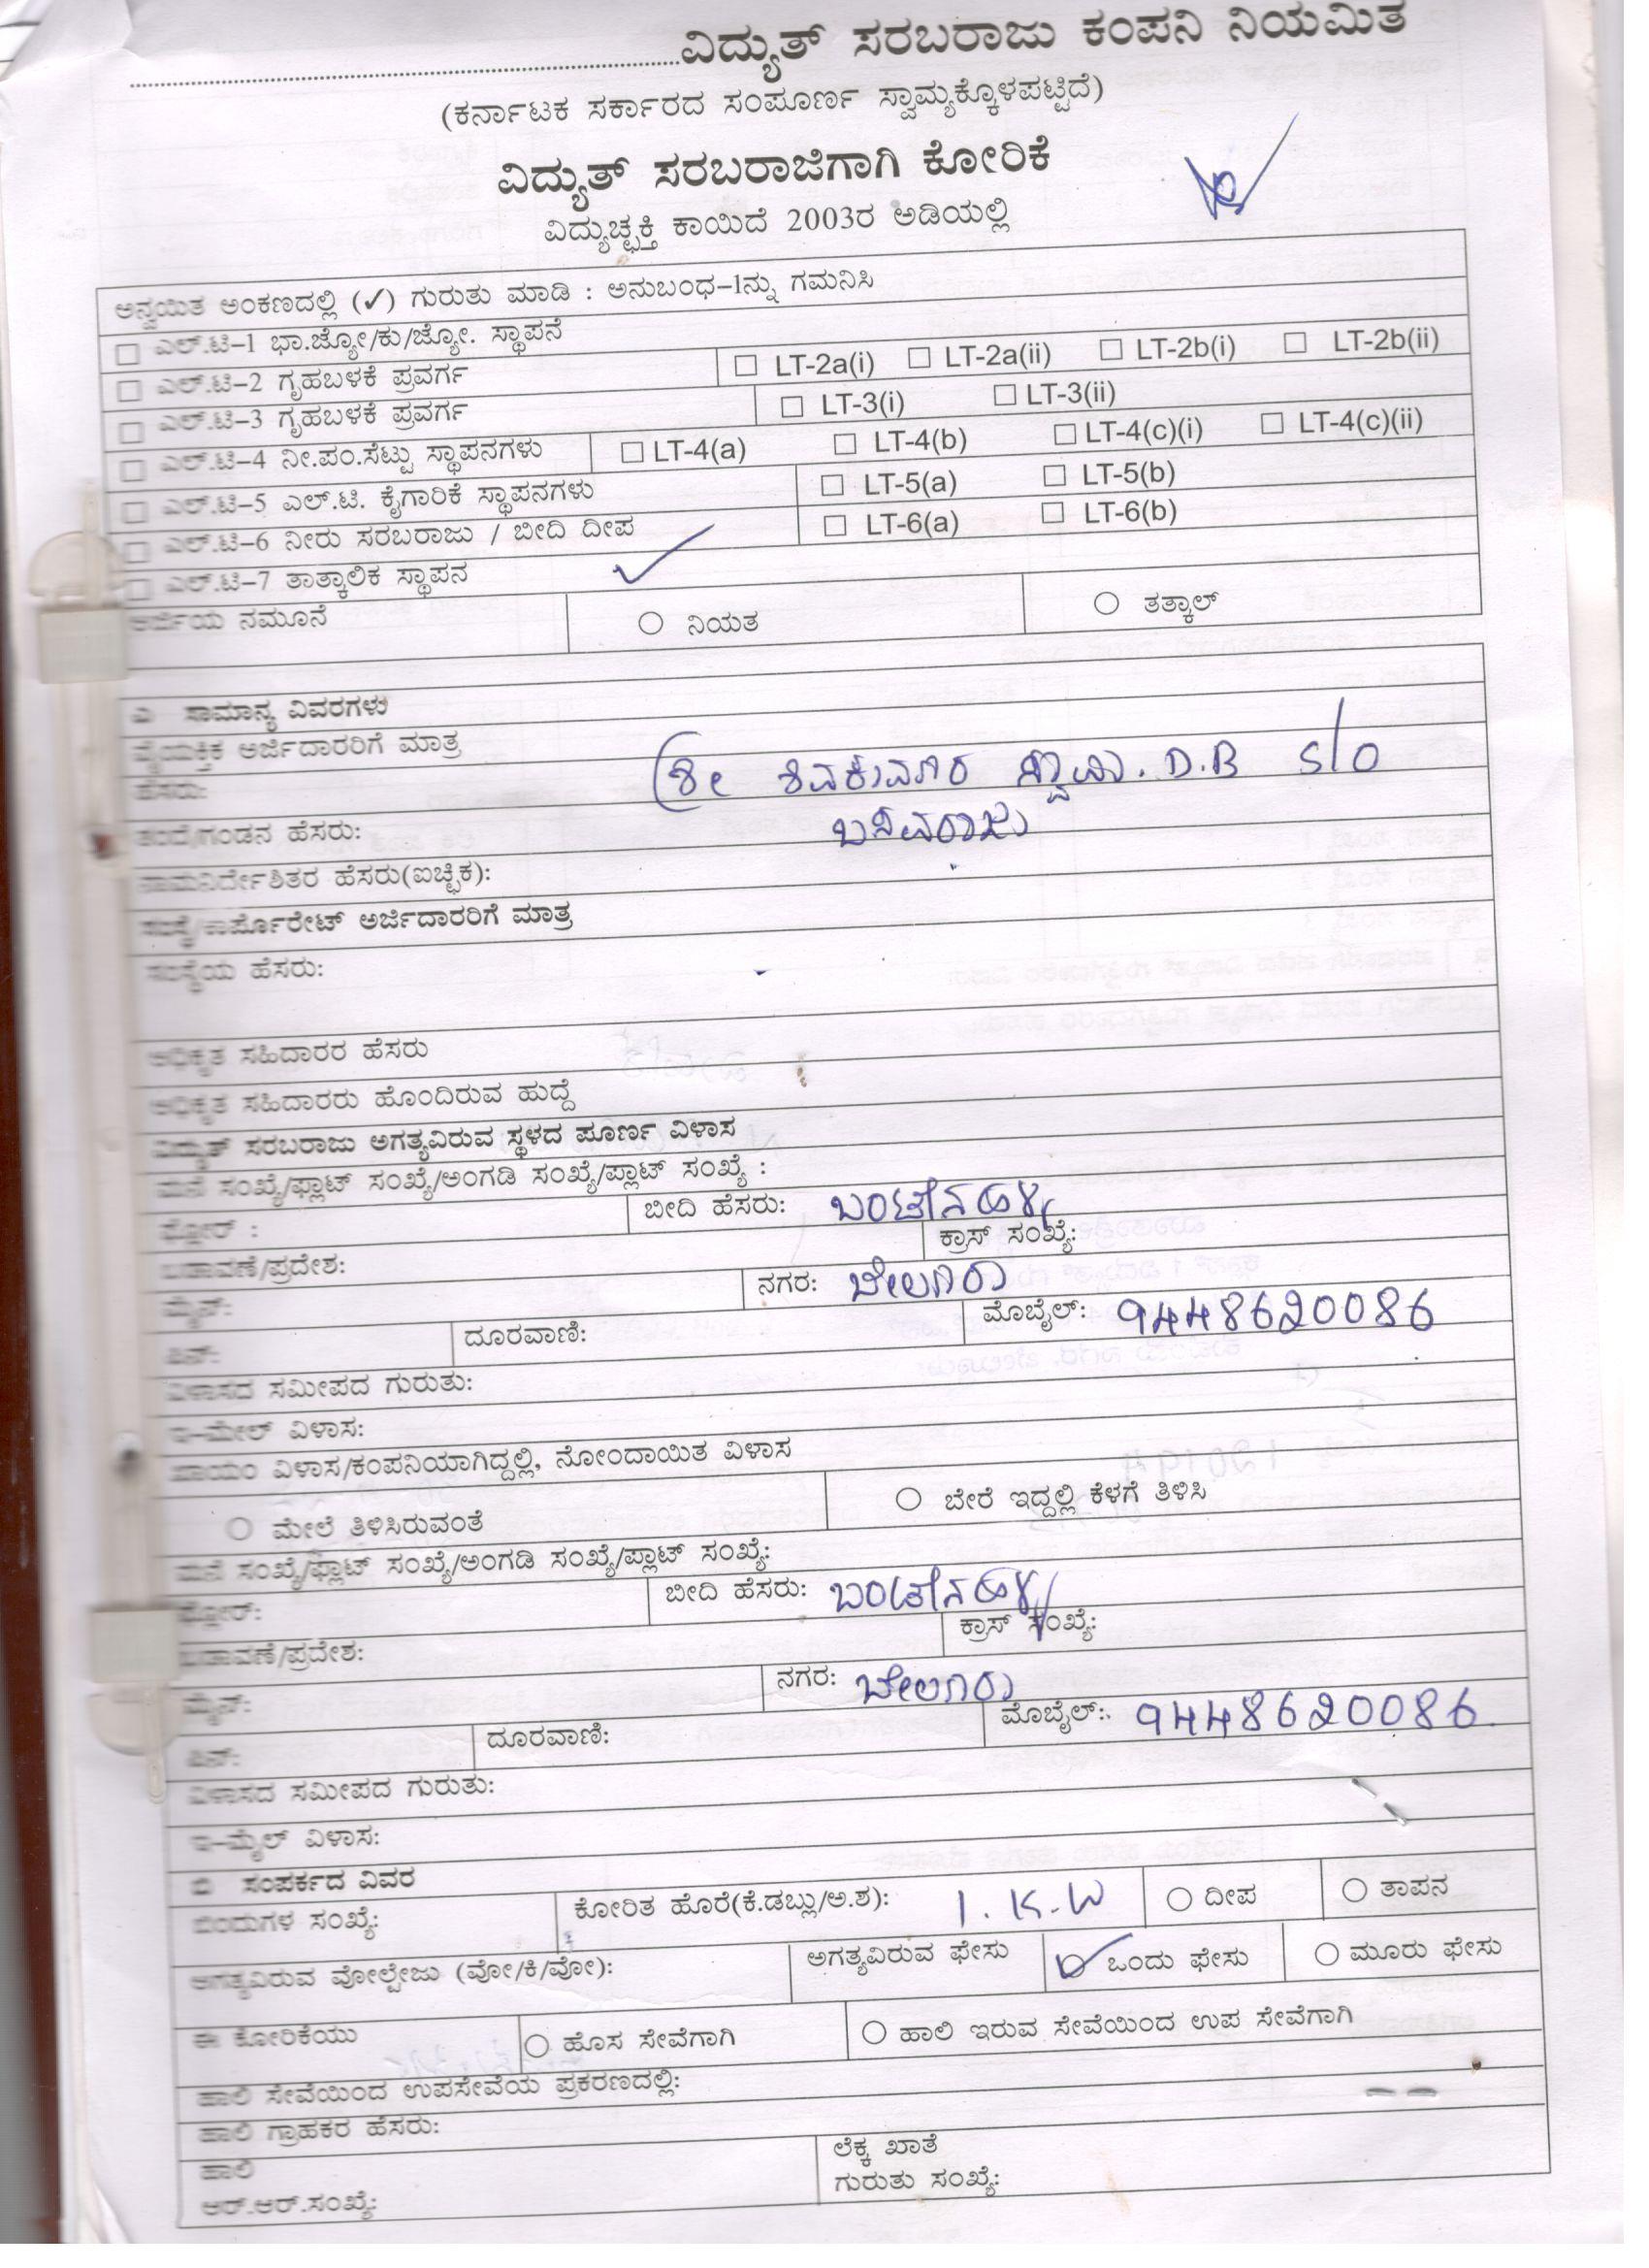 ..........ವಿದ್ಯುತ್ ಸರಬರಾಜು ಕಂಪನಿ ನಿಯಮಿತ
(ಕರ್ನಾಟಕ ಸರ್ಕಾರದ ಸಂಪೂರ್ಣ ಸ್ವಾಮ್ಯಕ್ಕೊಳಪಟ್ಟಿದೆ)
ವಿದ್ಯುತ್ ಸರಬರಾಜಿಗಾಗಿ ಕೋರಿಕೆ
ವಿದ್ಯುಚ್ಛಕ್ತಿ ಕಾಯಿದೆ 2003ರ ಅಡಿಯಲ್ಲಿ
ಅನ್ವಯಿತ ಅಂಕಣದಲ್ಲಿ (✓) ಗುರುತು ಮಾಡಿ : ಅನುಬಂಧ–1ನ್ನು ಗಮನಿಸಿ
☐ ಎಲ್.ಟಿ–1 ಭಾ.ಜ್ಯೋ/ಕು/ಜ್ಯೋ. ಸ್ಥಾಪನೆ
☐ ಎಲ್.ಟಿ–2 ಗೃಹಬಳಕೆ ಪ್ರವರ್ಗ ☐ LT-2a(i) ☐ LT-2a(ii) ☐ LT-2b(i) ☐ LT-2b(ii)
☐ ಎಲ್.ಟಿ–3 ಗೃಹಬಳಕೆ ಪ್ರವರ್ಗ ☐ LT-3(i) ☐ LT-3(ii)
☐ ಎಲ್.ಟಿ–4 ನೀ.ಪಂ.ಸೆಟ್ಟು ಸ್ಥಾಪನಗಳು ☐ LT-4(a) ☐ LT-4(b) ☐ LT-4(c)(i) ☐ LT-4(c)(ii)
☐ ಎಲ್.ಟಿ–5 ಎಲ್.ಟಿ. ಕೈಗಾರಿಕೆ ಸ್ಥಾಪನಗಳು ☐ LT-5(a) ☐ LT-5(b)
☐ ಎಲ್.ಟಿ–6 ನೀರು ಸರಬರಾಜು / ಬೀದಿ ದೀಪ ☐ LT-6(a) ☐ LT-6(b)
☐ ಎಲ್.ಟಿ–7 ತಾತ್ಕಾಲಿಕ ಸ್ಥಾಪನ ✓
ಅರ್ಜಿಯ ನಮೂನೆ ○ ನಿಯತ ○ ತತ್ಕಾಲ್
ಎ ಸಾಮಾನ್ಯ ವಿವರಗಳು
ವೈಯಕ್ತಿಕ ಅರ್ಜಿದಾರರಿಗೆ ಮಾತ್ರ
ಹೆಸರು: ಶ್ರೀ ಶಿವಕುಮಾರ ಸ್ವಾಮಿ. D.B S/O
ತಂದೆ/ಗಂಡನ ಹೆಸರು: ಬಸವರಾಜು
ನಾಮನಿರ್ದೇಶಿತರ ಹೆಸರು(ಐಚ್ಛಿಕ):
ಸಂಸ್ಥೆ/ಕಾರ್ಪೊರೇಟ್ ಅರ್ಜಿದಾರರಿಗೆ ಮಾತ್ರ
ಸಂಸ್ಥೆಯ ಹೆಸರು:
ಅಧಿಕೃತ ಸಹಿದಾರರ ಹೆಸರು
ಅಧಿಕೃತ ಸಹಿದಾರರು ಹೊಂದಿರುವ ಹುದ್ದೆ
ವಿದ್ಯುತ್ ಸರಬರಾಜು ಅಗತ್ಯವಿರುವ ಸ್ಥಳದ ಪೂರ್ಣ ವಿಳಾಸ
ಮನೆ ಸಂಖ್ಯೆ/ಫ್ಲಾಟ್ ಸಂಖ್ಯೆ/ಅಂಗಡಿ ಸಂಖ್ಯೆ/ಪ್ಲಾಟ್ ಸಂಖ್ಯೆ :
ಫ್ಲೋರ್ : ಬೀದಿ ಹೆಸರು:
ಬಡಾವಣೆ/ಪ್ರದೇಶ: ಕ್ರಾಸ್ ಸಂಖ್ಯೆ:
ಮೈನ್: ನಗರ: ಬೇಲೂರು
ಪಿನ್: ದೂರವಾಣಿ: ಮೊಬೈಲ್: 9448620086
ವಿಳಾಸದ ಸಮೀಪದ ಗುರುತು:
ಇ–ಮೇಲ್ ವಿಳಾಸ:
ಖಾಯಂ ವಿಳಾಸ/ಕಂಪನಿಯಾಗಿದ್ದಲ್ಲಿ, ನೋಂದಾಯಿತ ವಿಳಾಸ
○ ಮೇಲೆ ತಿಳಿಸಿರುವಂತೆ ○ ಬೇರೆ ಇದ್ದಲ್ಲಿ ಕೆಳಗೆ ತಿಳಿಸಿ
ಮನೆ ಸಂಖ್ಯೆ/ಫ್ಲಾಟ್ ಸಂಖ್ಯೆ/ಅಂಗಡಿ ಸಂಖ್ಯೆ/ಪ್ಲಾಟ್ ಸಂಖ್ಯೆ:
ಫ್ಲೋರ್: ಬೀದಿ ಹೆಸರು:
ಬಡಾವಣೆ/ಪ್ರದೇಶ: ಕ್ರಾಸ್ ಸಂಖ್ಯೆ:
ಮೈನ್: ನಗರ: ಬೇಲೂರು
ಪಿನ್: ದೂರವಾಣಿ: ಮೊಬೈಲ್: 9448620086
ವಿಳಾಸದ ಸಮೀಪದ ಗುರುತು:
ಇ–ಮೈಲ್ ವಿಳಾಸ:
ಬಿ ಸಂಪರ್ಕದ ವಿವರ
ಬಿಂದುಗಳ ಸಂಖ್ಯೆ: ಕೋರಿತ ಹೊರೆ(ಕೆ.ಡಬ್ಲು/ಅ.ಶ): 1. K.W ○ ದೀಪ ○ ತಾಪನ
ಅಗತ್ಯವಿರುವ ವೋಲ್ಟೇಜು (ವೋ/ಕಿ/ವೋ): ಅಗತ್ಯವಿರುವ ಫೇಸು ○ ಒಂದು ಫೇಸು ○ ಮೂರು ಫೇಸು
ಈ ಕೋರಿಕೆಯು ○ ಹೊಸ ಸೇವೆಗಾಗಿ ○ ಹಾಲಿ ಇರುವ ಸೇವೆಯಿಂದ ಉಪ ಸೇವೆಗಾಗಿ
ಹಾಲಿ ಸೇವೆಯಿಂದ ಉಪಸೇವೆಯ ಪ್ರಕರಣದಲ್ಲಿ:
ಹಾಲಿ ಗ್ರಾಹಕರ ಹೆಸರು:
ಹಾಲಿ ಲೆಕ್ಕ ಖಾತೆ
ಆರ್.ಆರ್.ಸಂಖ್ಯೆ: ಗುರುತು ಸಂಖ್ಯೆ: